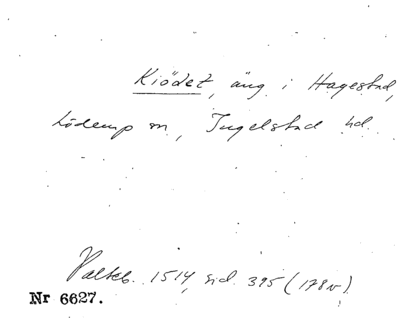 Kiödet, äng i Hagestad,
Löderup sn, Ingelstad hd.
Palteb. 1514, sid. 395 (178v).
Nr 6627.